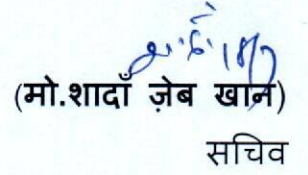 (मो.शादाँ ज़ेब खान)
सचिव